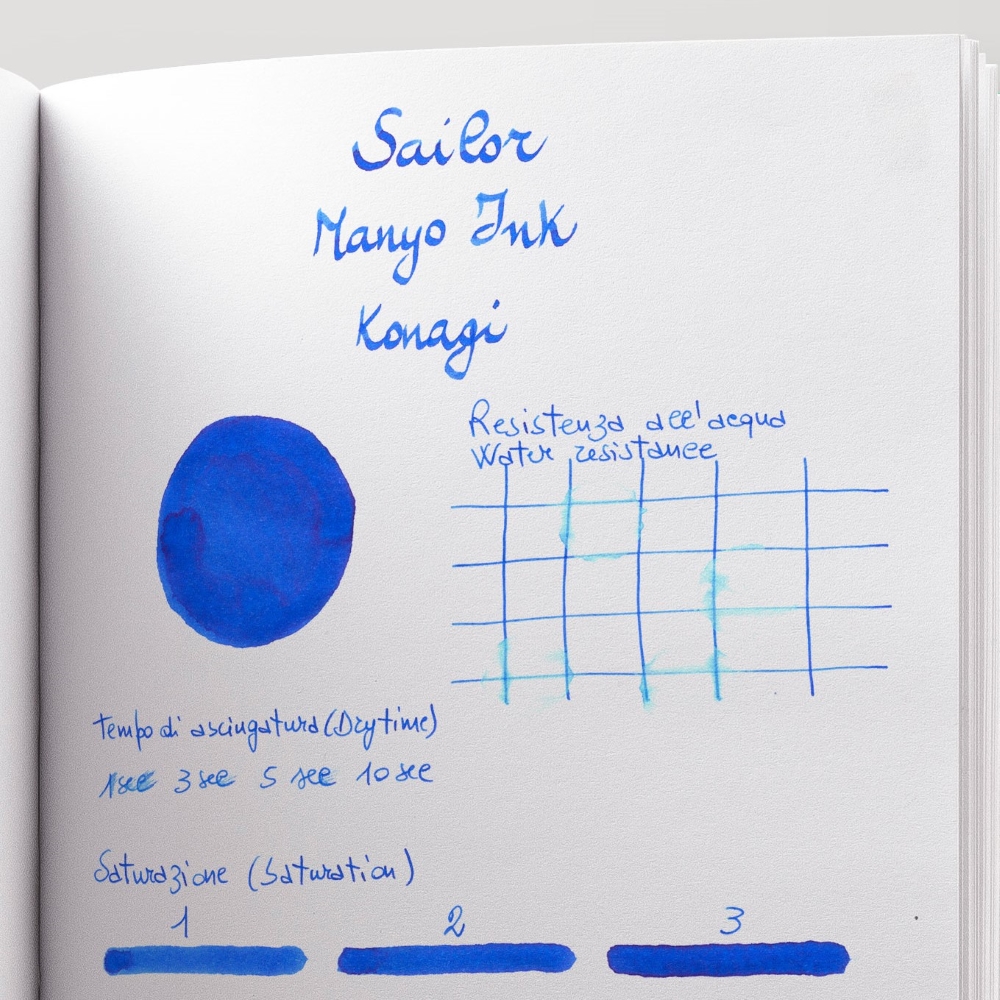 Sailor
Manyo Ink
Konagi
Resistenza all'acqua
Water resistance
Tempo di asciugatura (Dry time)
1 sec 3 sec 5 sec 10 sec
Saturazione (Saturation)
1 2 3